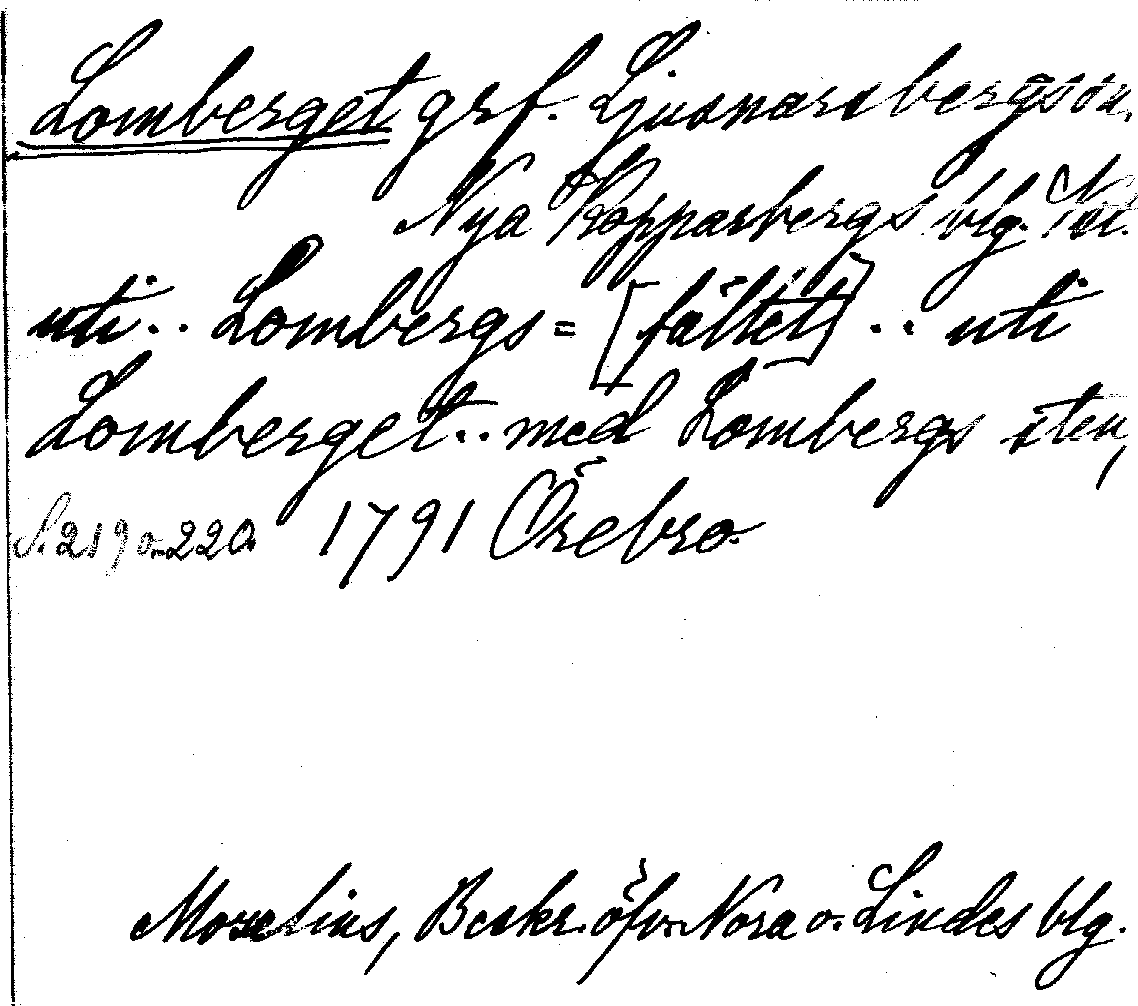 Lomberget grf. Ljusnarsbergs sn,
Nya Kopparbergs blg.
uti.. Lombergs = [fältet] .. uti
Lomberget.. med Lombergs sten,
S. 219 o. 220. 1791 Örebro.
Moxelius, Beskr. öfv. Nora o. Lindes blg.